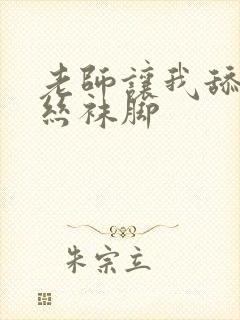 老師讓我舔
絲袜脚
朱宗立